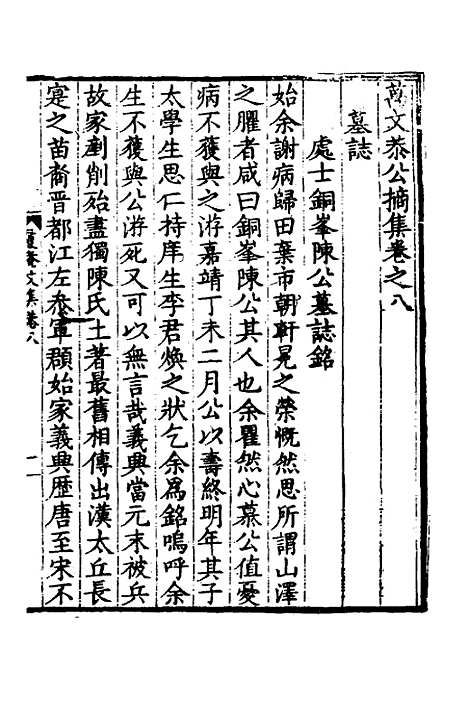 萬文恭公摘集卷之八
墓誌
處士銅峯陳公墓誌銘
始余謝病歸田棄市朝軒冕之榮慨然思所謂山澤
之臞者咸曰銅峯陳公其人也余瞿然心慕公值憂
病不獲與之游嘉靖丁未二月公以壽終明年其子
太學生思仁持庠生李君煥之狀乞余爲銘嗚呼余
生不獲與公游死又可以無言哉義興當元末被兵
故家剷削殆盡獨陳氏土著最舊相傳出漢太丘長
寔之苗裔晉都江左叅軍頵始家義興歷唐至宋不
文集卷八